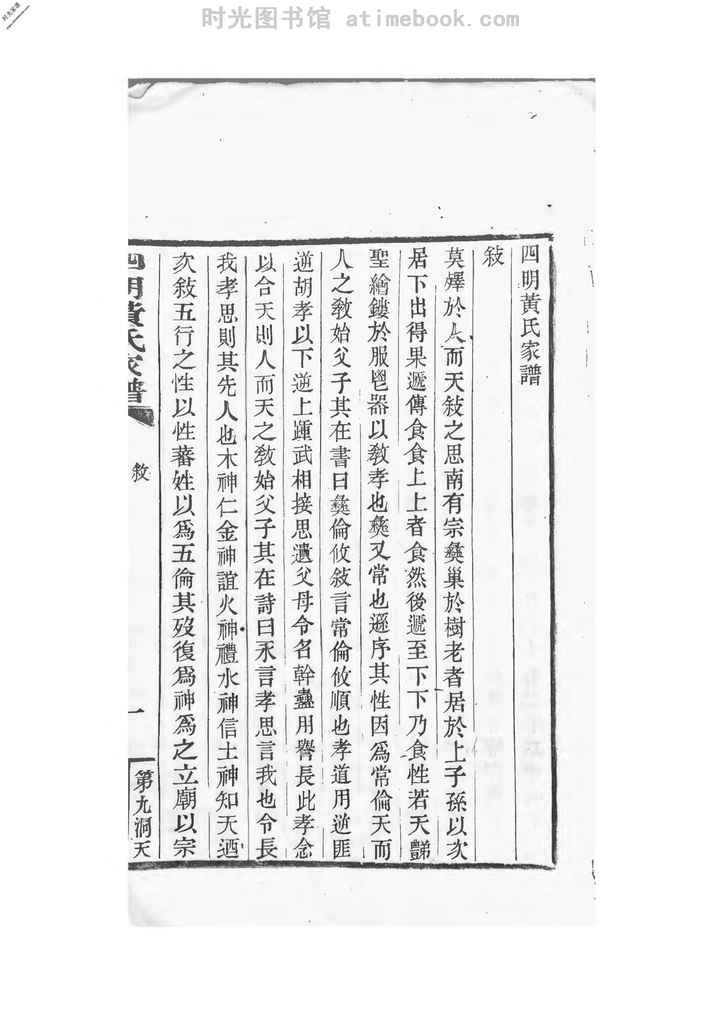 时光图书馆 atimebook.com
四明黃氏家譜
敍
莫嬕於人而天敍之思南有宗彝巢於樹老者居於上子孫以次
居下出得果遞傳食食上上者食然後遞至下下乃食性若天
聖繪鏤於服鬯器以敎孝也彝又常也遜序其性因爲常倫天而
人之敎始父子其在書曰彝倫攸敍言常倫攸順也孝道用逆匪
逆胡孝以下逆上踵武相接思遺父母令名幹蠱用譽長此孝念
以合天則人而天之敎始父子其在詩曰永言孝思言我也令長
我孝思則其先人也木神仁金神誼火神禮水神信土神知天迺
次敍五行之性以性蕃姓以爲五倫其歿復爲神爲之立廟以宗
四明黃氏家譜
敍
一
第九洞天